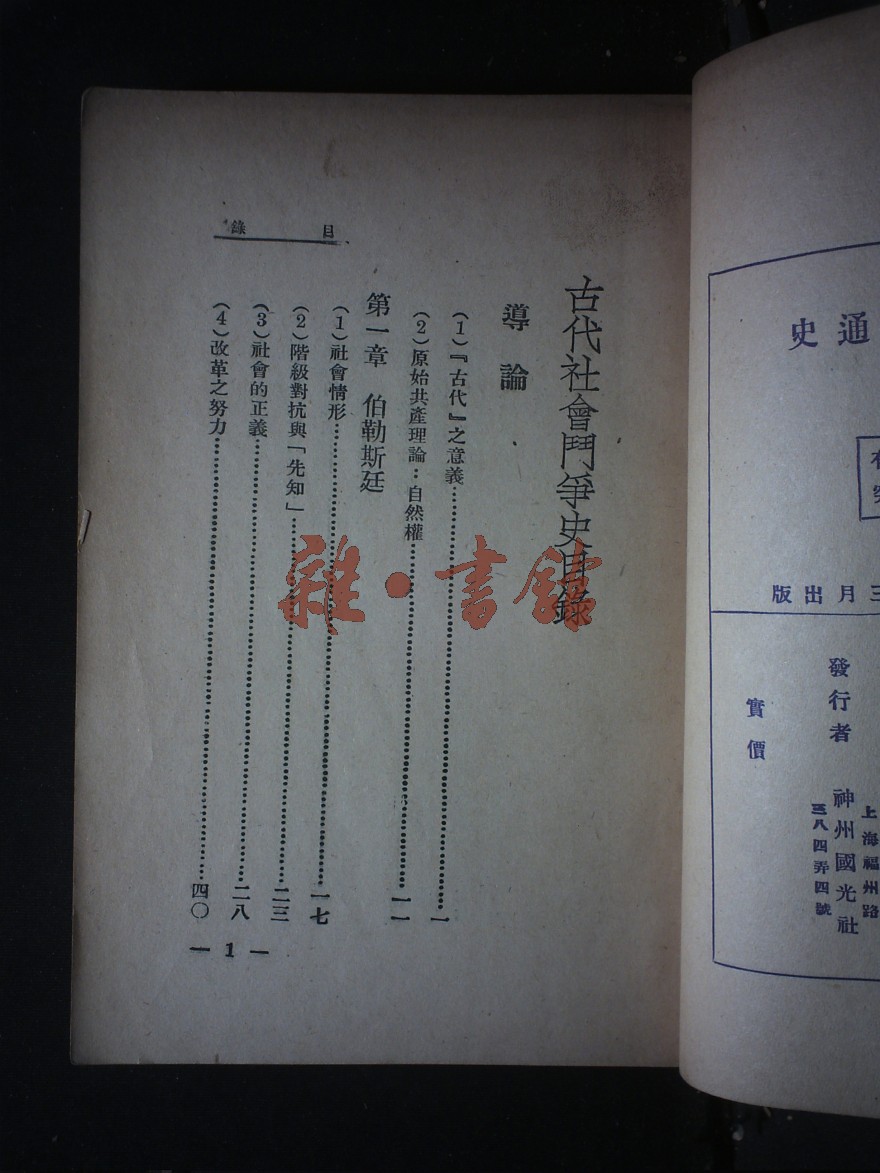 通史
三月出版
發行者 神州國光社
上海福州路
三八四弄四號
實價
古代社會鬥爭史目錄
導論
(1)『古代』之意義……一
(2)原始共產理論:自然權……一一
第一章 伯勒斯廷
(1)社會情形……一七
(2)階級對抗與「先知」……二三
(3)社會的正義……二八
(4)改革之努力……四〇
目錄
— 1 —
雜·書館